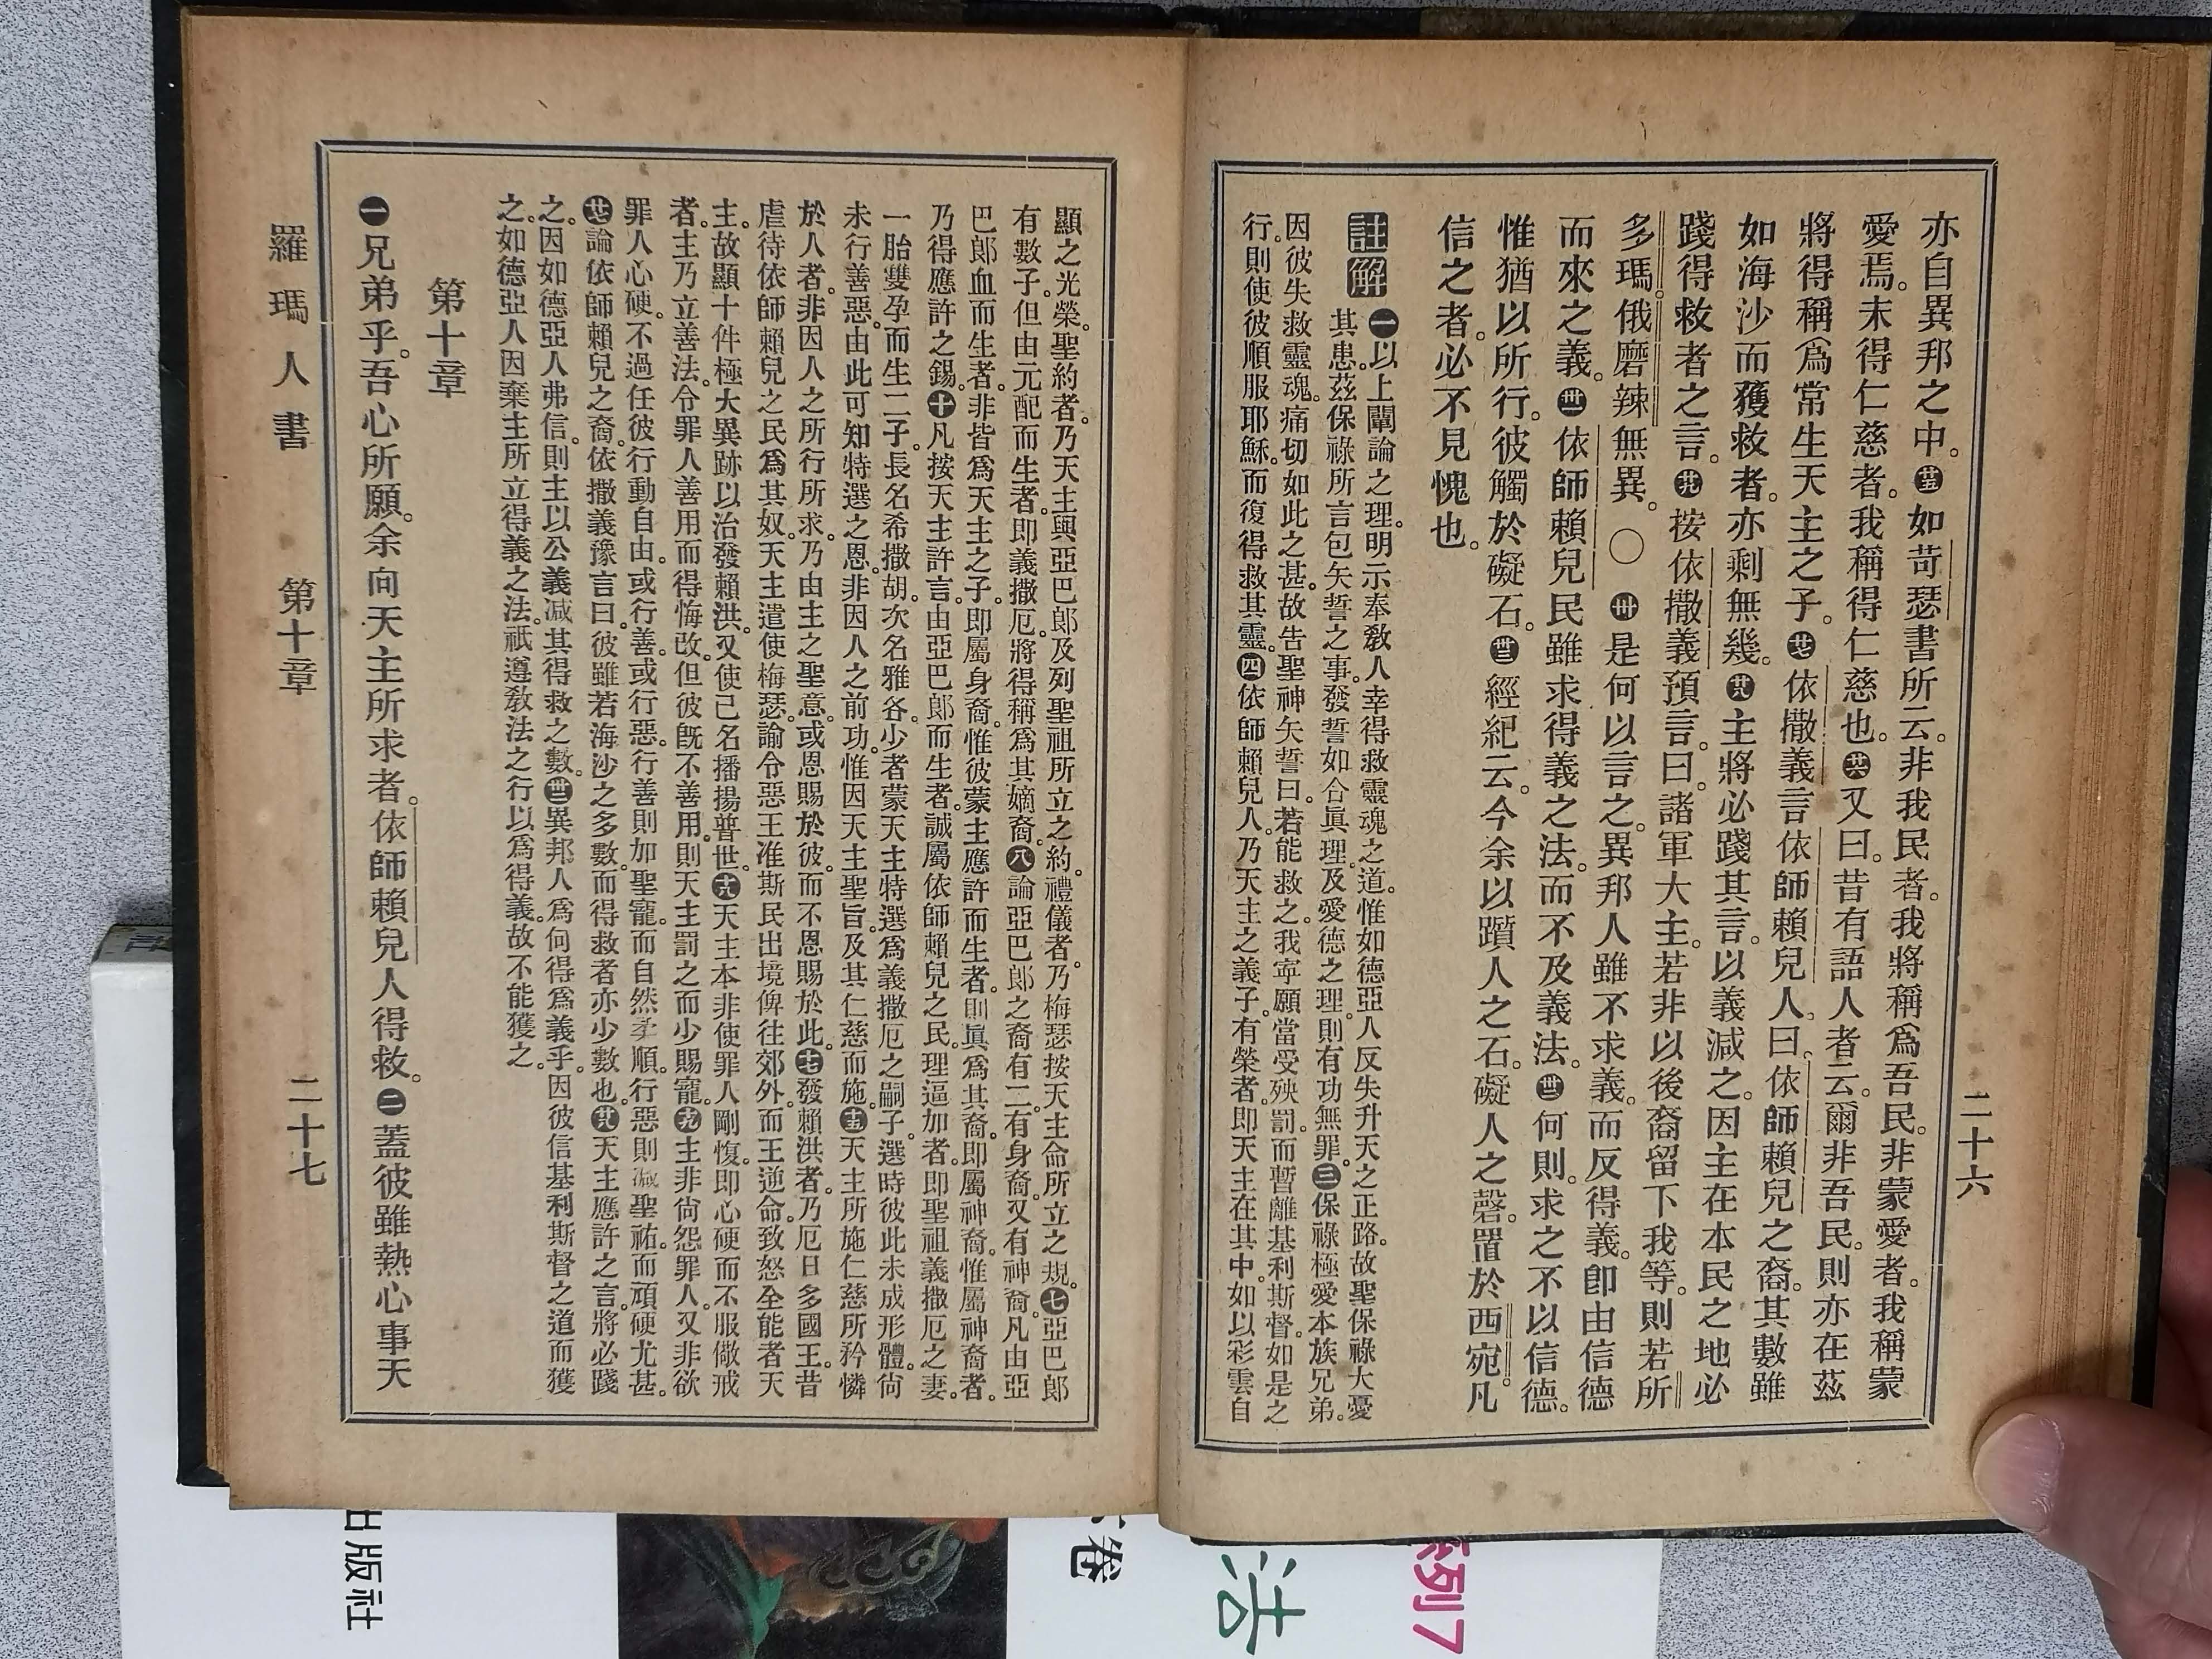 二十六
亦自異邦之中。㊄如苛瑟書所云。非我民者。我將稱爲吾民。非蒙愛者。我稱蒙
愛焉。未得仁慈者。我稱得仁慈也。又曰。昔有語人者云。爾非吾民。則亦在茲
將得稱爲常生天主之子。依撒義言依師賴兒人。曰。依師賴兒之裔。其數雖
如海沙而獲救者。亦剩無幾。主將必踐其言。以義減之。因主在本民之地必
踐得救者之言。按依撒義預言。曰。諸軍大主。若非以後裔留下我等。則若所
多瑪。俄磨辣無異。〇是何以言之。異邦人雖不求義。而反得義。卽由信德
而來之義。依師賴兒民雖求得義之法。而不及義法。何則。求之不以信德。
惟猶以所行。彼觸於礙石。經紀云。今余以躓人之石。礙人之磬。置於西宛。凡
信之者。必不見愧也。
註解
一以上闡論之理。明示奉敎人幸得救靈魂之道。惟如德亞人反失升天之正路。故聖保祿大憂
其患。茲保祿所言包矢誓之事。發誓如合眞理。及愛德之理。則有功無罪。三保祿極愛本族兄弟。
因彼失救靈魂。痛切如此之甚。故告聖神矢誓曰。若能救之。我寧願當受殃罰。而暫離基利斯督。如是之
行。則使彼順服耶穌。而復得救其靈。四依師賴兒人。乃天主之義子。有榮者。即天主在其中。如以彩雲自
顯之光榮。聖約者。乃天主與亞巴郎及列聖祖所立之約。禮儀者。乃梅瑟按天主命所立之規。七亞巴郎
有數子。但由元配而生者。即義撒厄。將得稱爲其嫡裔。八論亞巴郎之裔有二。有身裔。又有神裔。凡由亞
巴郎血而生者。非皆爲天主之子。即屬身裔。惟彼蒙主應許而生者。則眞爲其裔。即屬神裔。惟屬神裔者。
乃得應許之錫。十凡按天主許言。由亞巴郎而生者。誠屬依師賴兒之民。理逼加者。即聖祖義撒厄之妻。
一胎雙孕而生二子。長名希撒胡。次名雅各。少者蒙天主特選爲義撒厄之嗣子。選時彼此未成形體。尙
未行善惡。由此可知特選之恩。非因人之前功。惟因天主聖旨。及其仁慈而施。十五天主所施仁慈所矜憐
於人者。非因人之所行所求。乃由主之聖意。或恩賜於彼。而不恩賜於此。十七發賴洪者。乃厄日多國王。昔
虐待依師賴兒之民爲其奴。天主遣使梅瑟諭令惡王准斯民出境俾往郊外。而王逆命。致怒全能者天
主。故顯十件極大異跡以治發賴洪。又使己名播揚普世。十八天主本非使罪人剛愎。即心硬而不服儆戒
者。主乃立善法。令罪人善用而得悔改。但彼旣不善用。則天主罰之而少賜寵。十九主非尙怨罪人。又非欲
罪人心硬。不過任彼行動自由。或行善。或行惡。行善則加聖寵。而自然柔順。行惡則減聖祐。而頑硬尤甚。
廿七論依師賴兒之裔。依撒義豫言曰。彼雖若海沙之多數。而得救者亦少數也。廿八天主應許之言。將必踐
之。因如德亞人弗信。則主以公義減其得救之數。異邦人爲何得爲義乎。因彼信基利斯督之道而獲
之。如德亞人因棄主所立得義之法。祇遵敎法之行以爲得義。故不能獲之。
第十章
一兄弟乎。吾心所願。余向天主所求者。依師賴兒人得救。二蓋彼雖熱心事天
羅瑪人書 第十章 二十七
出版社
卷
法
系列7